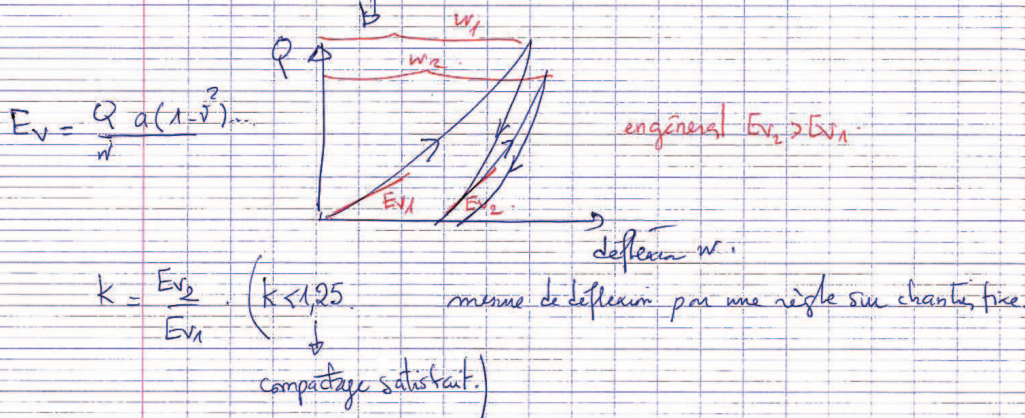 w1
Q
w2
Ev = Q a(1-ν²)... / w
en général Ev2 > Ev1.
Ev1
Ev2.
déflexion w.
k = Ev2 / Ev1 . (k < 1,25
mesure de déflexion par une règle sur chantier, fixe.
compactage satisfait.)